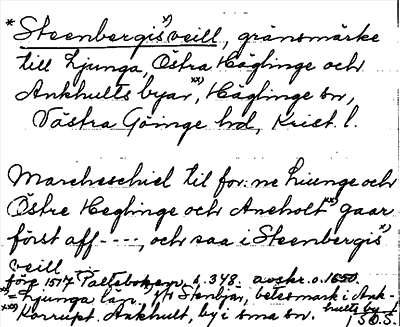 * Steenbergis x) veill, gränsmärke
till Ljunga, Östra Häglinge och
Ankhults byar, xx) Häglinge sn,
Västra Göinge hd, Krist. l.
Marcheschiel til for:ne Liunge och
Östre Heglinge och Aneholt xx) gaar
först aff ----, och saa i Steenbergis x)
veill
före 1517 Palteboken s. 348. avskr. o. 1650.
x) = Ljunga lp. Stenbjär, betesmark i Ank-
xx) Korrupt. Ankhult, by i sma sn. hults by!
S.O.S.